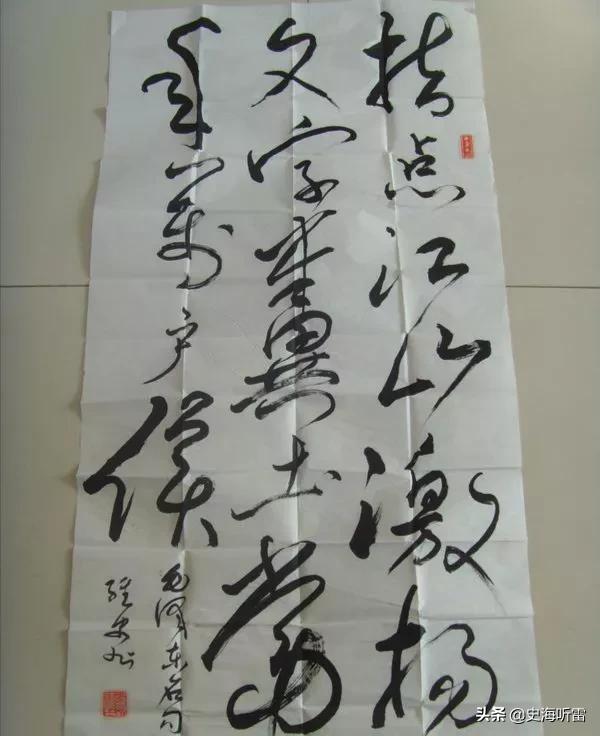 指点江山激扬
文字糞土當
年萬户侯
毛泽东名句
头条 @史海听雷